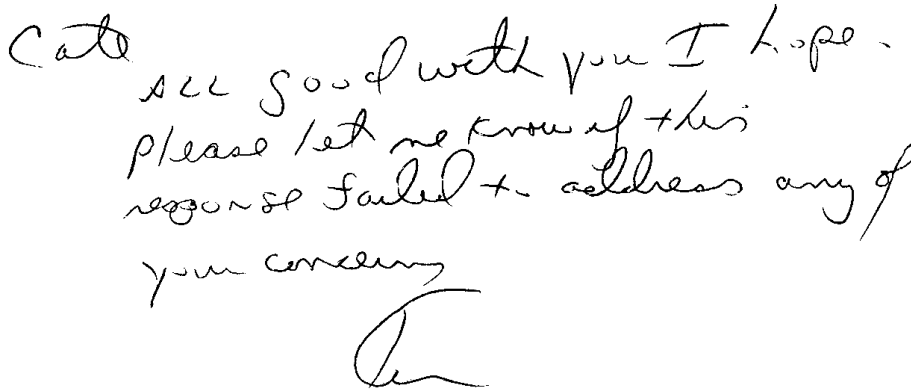 Cate
All good with you I hope.
Please let me know if this
response failed to address any of
your concerns